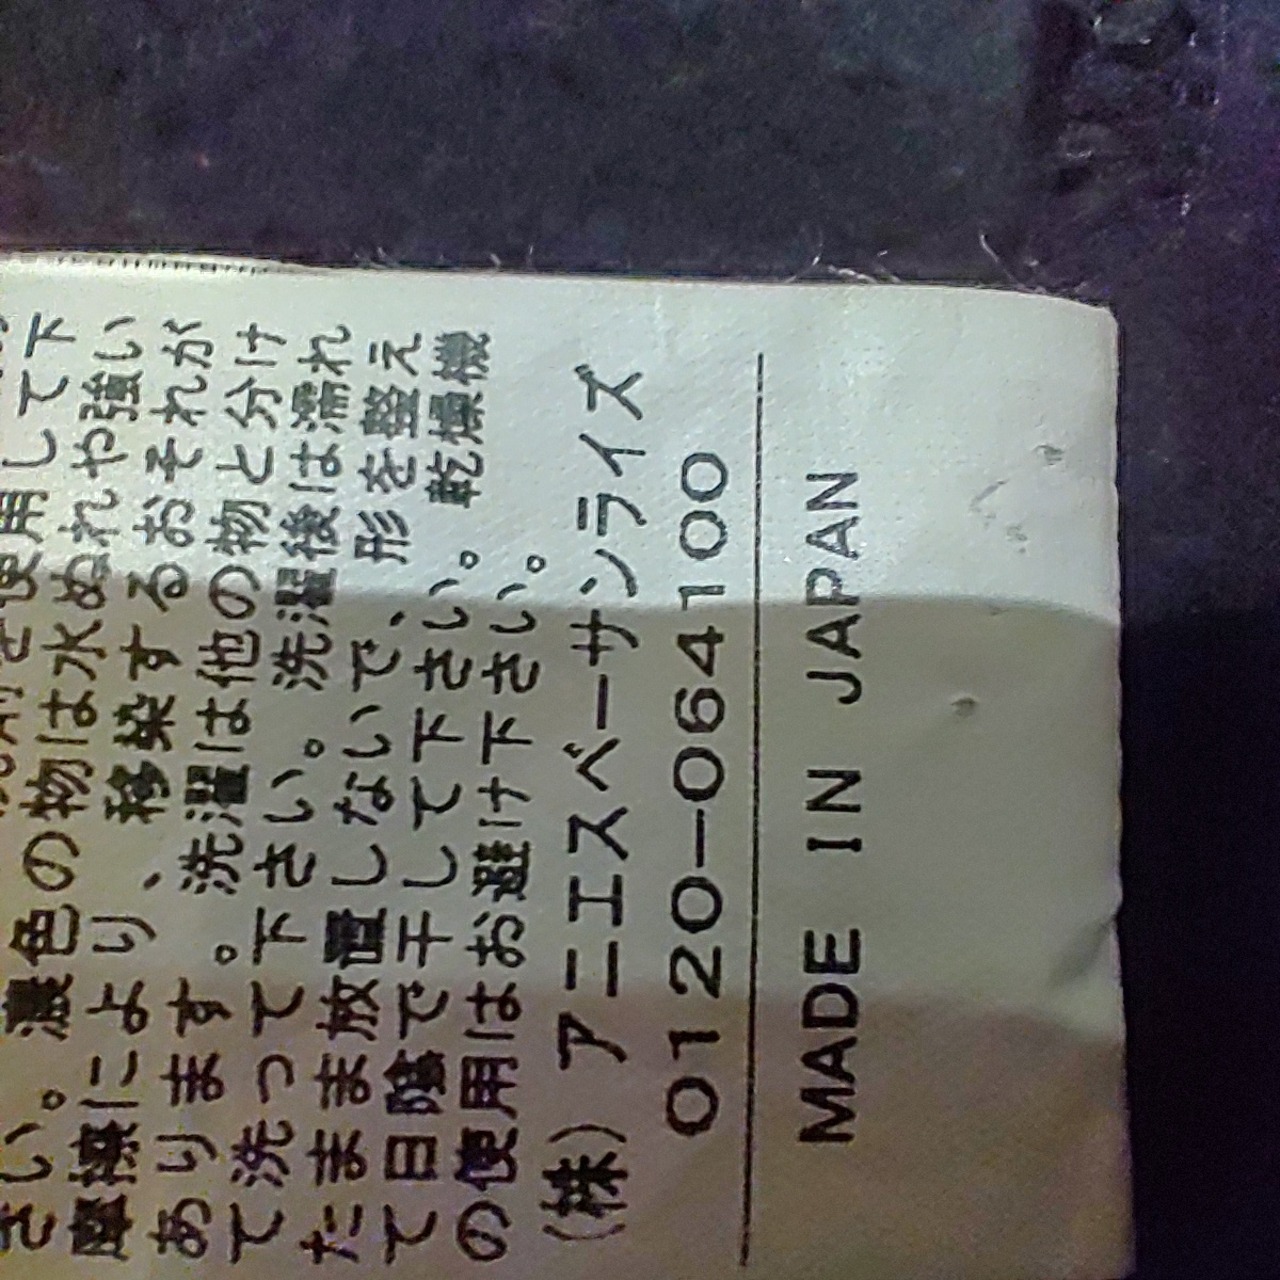 使用して下
さい。濃色の物は水ぬれや強い
摩擦により、移染するおそれが
あります。洗濯は他の物と分け
て洗って下さい。洗濯後は濡れ
たまま放置しないで、形を整え
て日陰で干して下さい。乾燥機
の使用はお避け下さい。
(株) アニエスベーサンライズ
0120-064100
MADE IN JAPAN